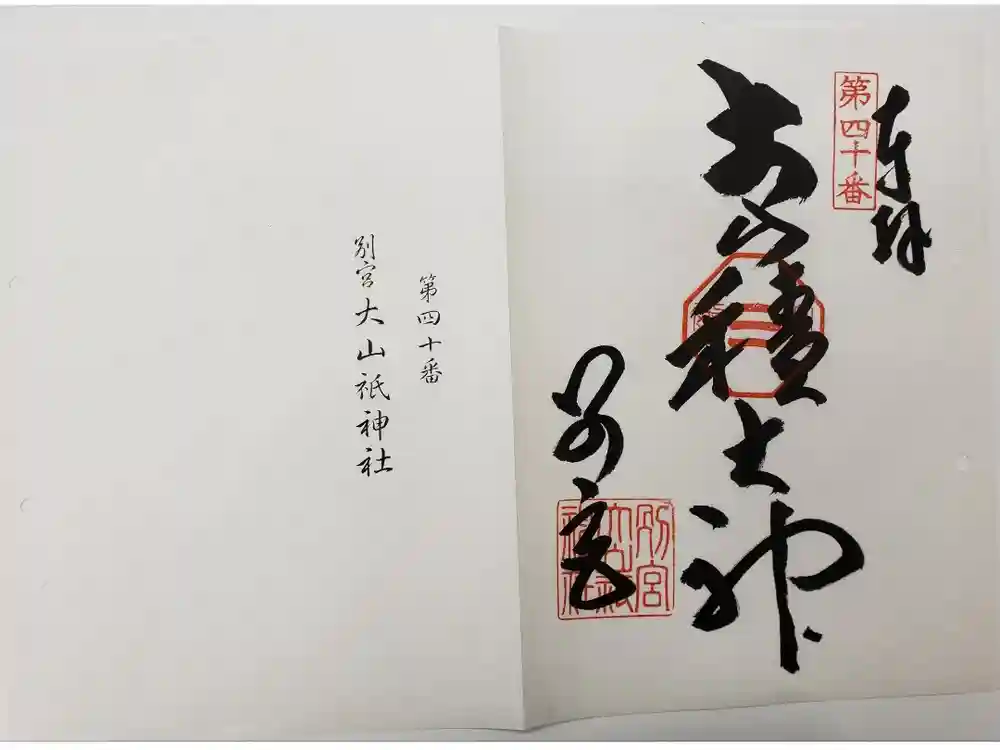 奉拝
第四十番
大山積大神
別宮
別宮
大山祇
神社
第四十番
別宮大山祇神社